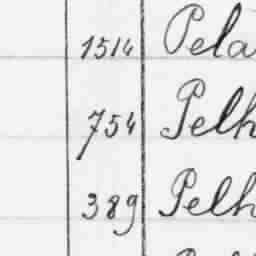 1514 Pela
754 Pelh
389 Pelh